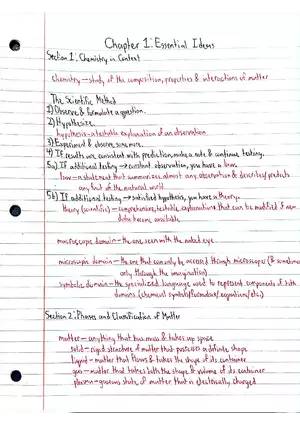 Chapter 1: Essential Ideas
Section 1: Chemistry in Context
chemistry – study of the composition, properties & interactions of matter
The Scientific Method
1) Observe & formulate a question.
2) Hypothesize.
hypothesis – a testable explanation of an observation
3) Experiment & observe some more.
4) If results are consistent with prediction, make a note & continue testing.
5a) If additional testing → constant observation, you have a law.
law – a statement that summarizes almost any observation & describes/predicts
any facet of the natural world
5b) If additional testing → satisfied hypothesis, you have a theory.
theory (scientific) – comprehensive, testable explanations that can be modified if new
data become available
macroscopic domain – the one seen with the naked eye
microscopic domain – the one that can only be accessed through microscopes (& sometimes
only through the imagination)
symbolic domain – the specialized language used to represent components of both
domains (chemical symbols/formulas/equations/etc.)
Section 2: Phases and Classification of Matter
matter – anything that has mass & takes up space
solid – rigid structure of matter that possesses a definite shape
liquid – matter that flows & takes the shape of its container
gas – matter that takes both the shape & volume of its container
plasma – gaseous state of matter that is electrically charged